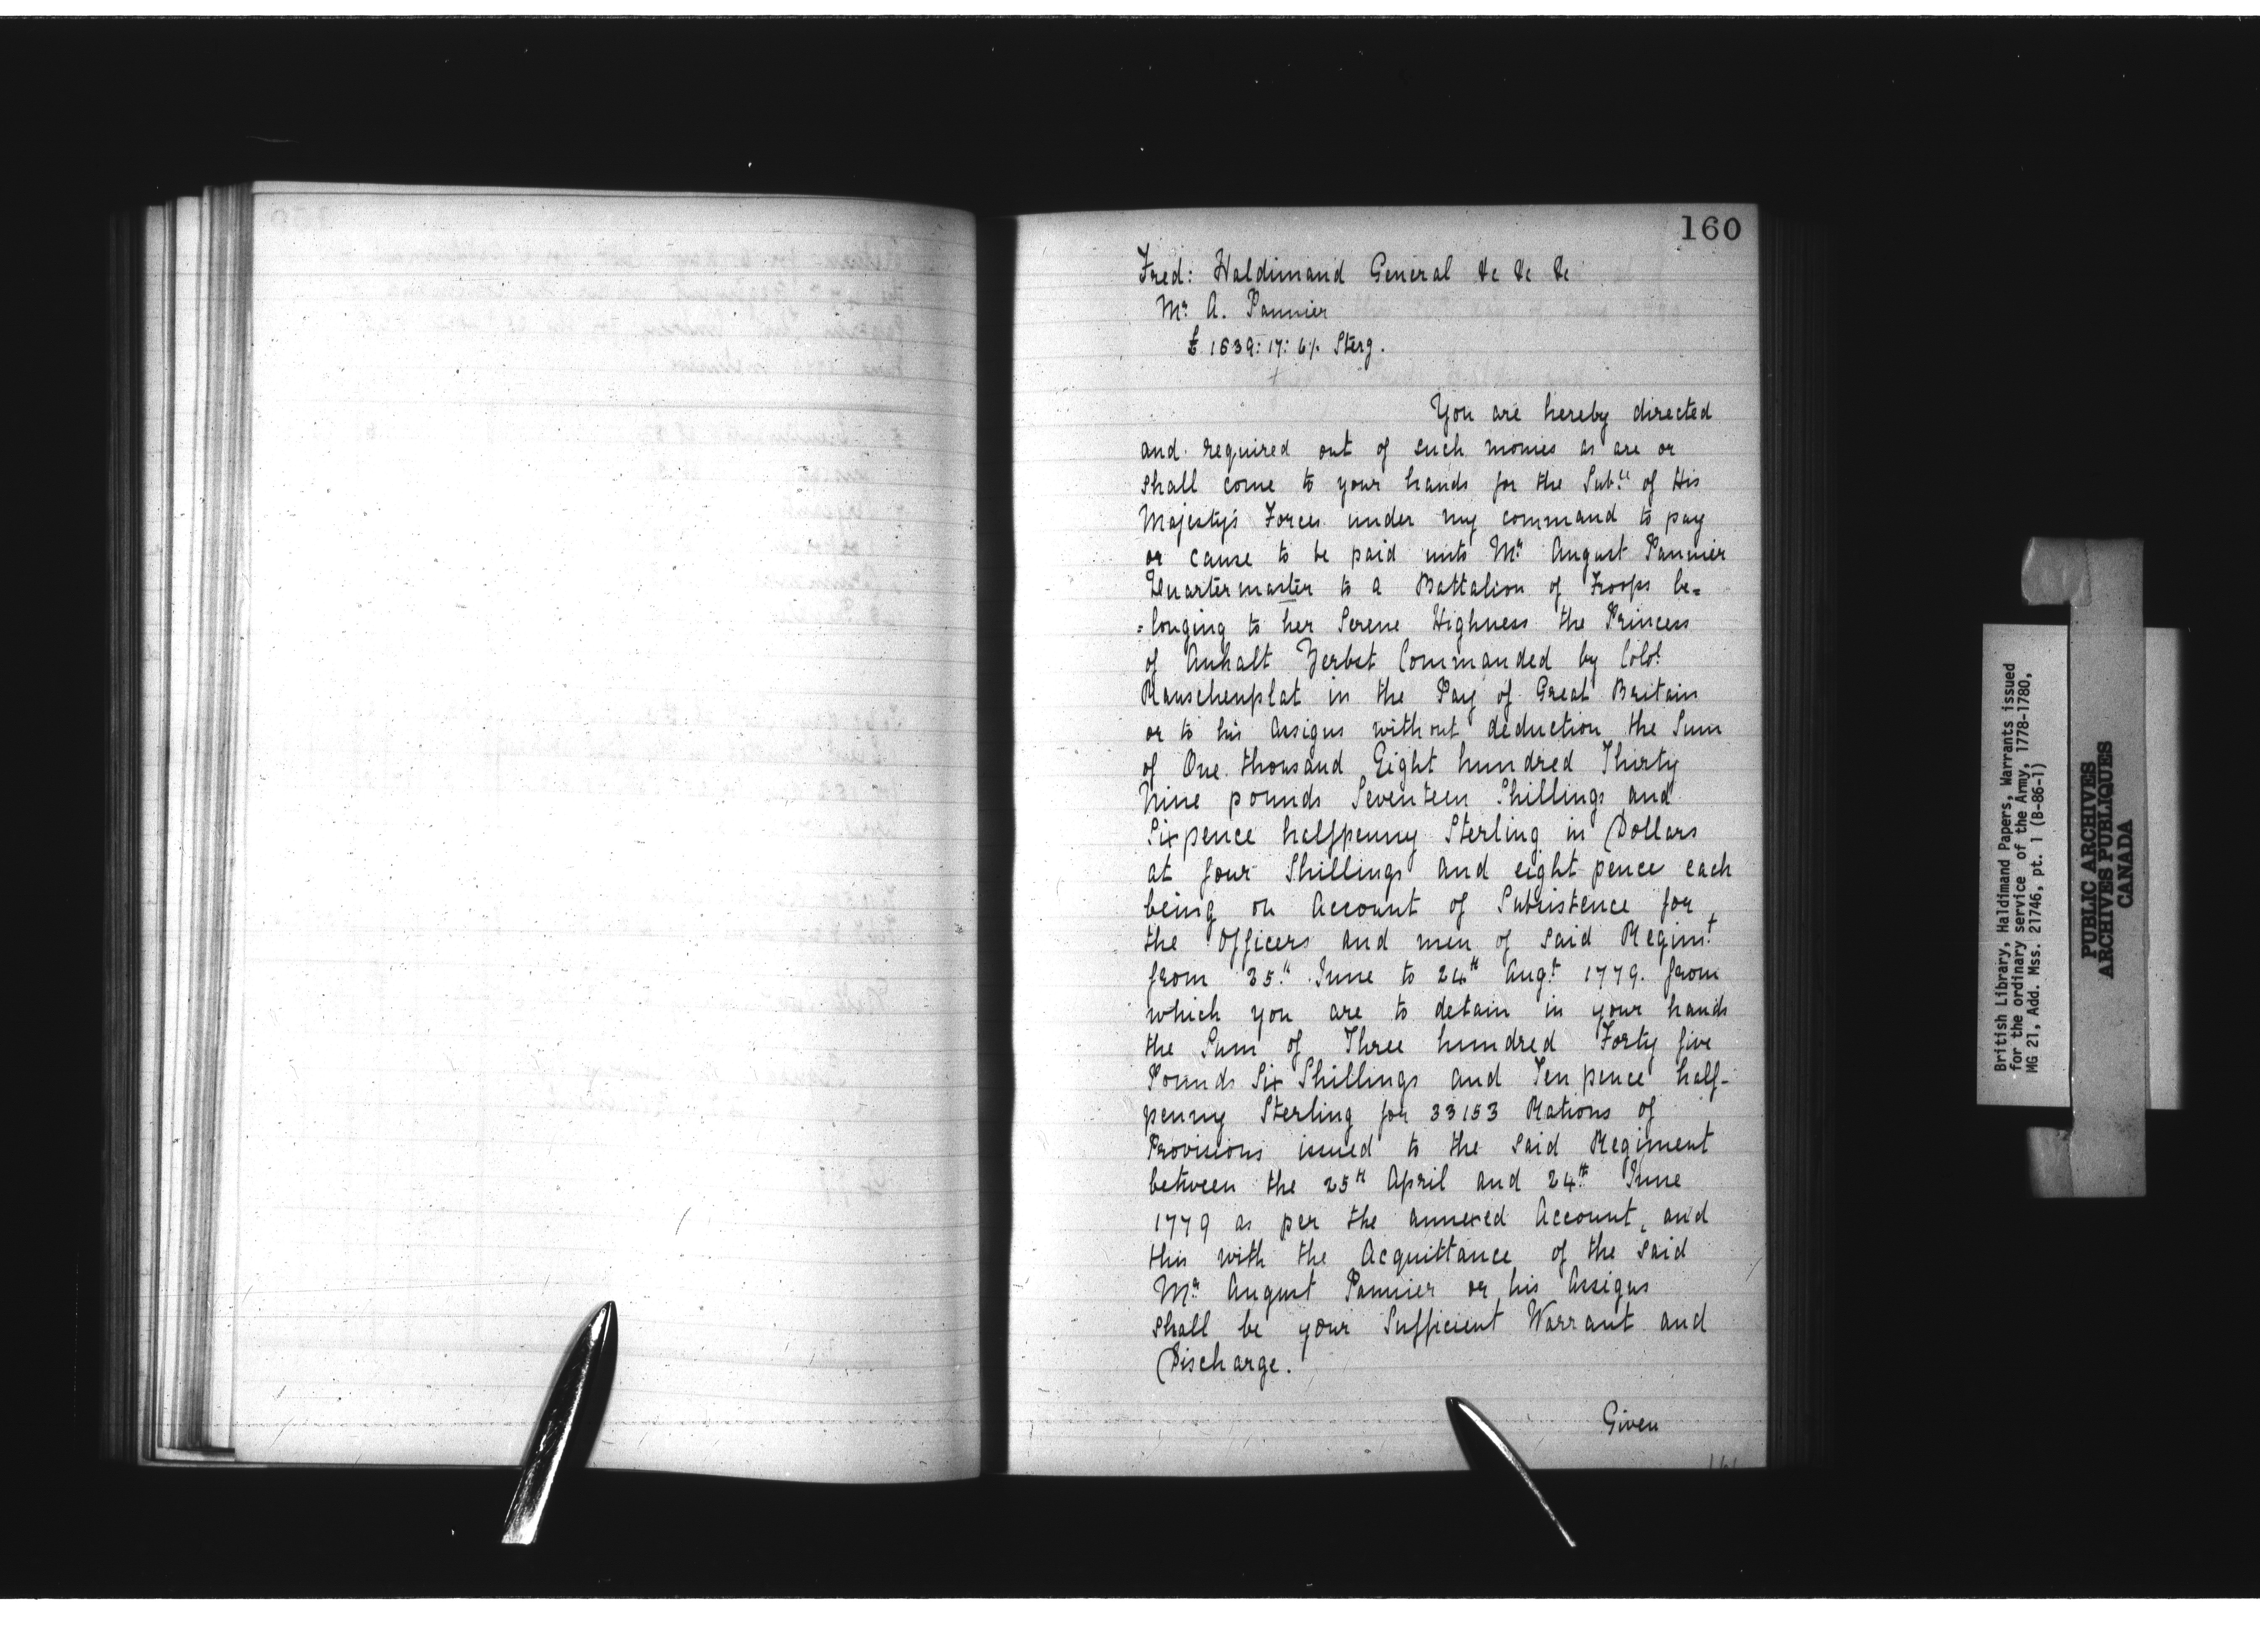 160
Fred: Haldimand General &c &c &c
Mr. A. Pannier
£ 1639: 17: 6½ Sterg.
You are hereby directed
and required out of such monies as are or
shall come to your hands for the Sub.ce of His
Majesty's Forces under my command to pay
or cause to be paid unto Mr. August Pannier
Quartermaster to a Battalion of Troops be=
=longing to her Serene Highness the Princess
of Anhalt Zerbst Commanded by Colol.
Rauschenplat in the Pay of Great Britain
or to his Assigns without deduction the Sum
of One thousand Eight hundred Thirty
Nine pounds Seventeen Shillings and
Sixpence halfpenny Sterling in Dollars
at four Shillings and eight pence each
being on Account of Subsistence for
the Officers and men of said Regimt.
from 25.th June to 24th Augt. 1779. from
which you are to detain in your hands
the Sum of Three hundred Forty five
Pounds Six Shillings and Ten pence half-
penny Sterling for 33153 Rations of
Provisions issued to the said Regiment
between the 25th April and 24th June
1779 as per the annexed Account, and
this with the Acquittance of the said
Mr. August Pannier or his Assigns
shall be your Sufficient Warrant and
Discharge.
Given
British Library, Haldimand Papers, Warrants issued
for the ordinary service of the Army, 1778-1780,
MG 21, Add. Mss. 21746, pt. 1 (B-86-1)
PUBLIC ARCHIVES
ARCHIVES PUBLIQUES
CANADA